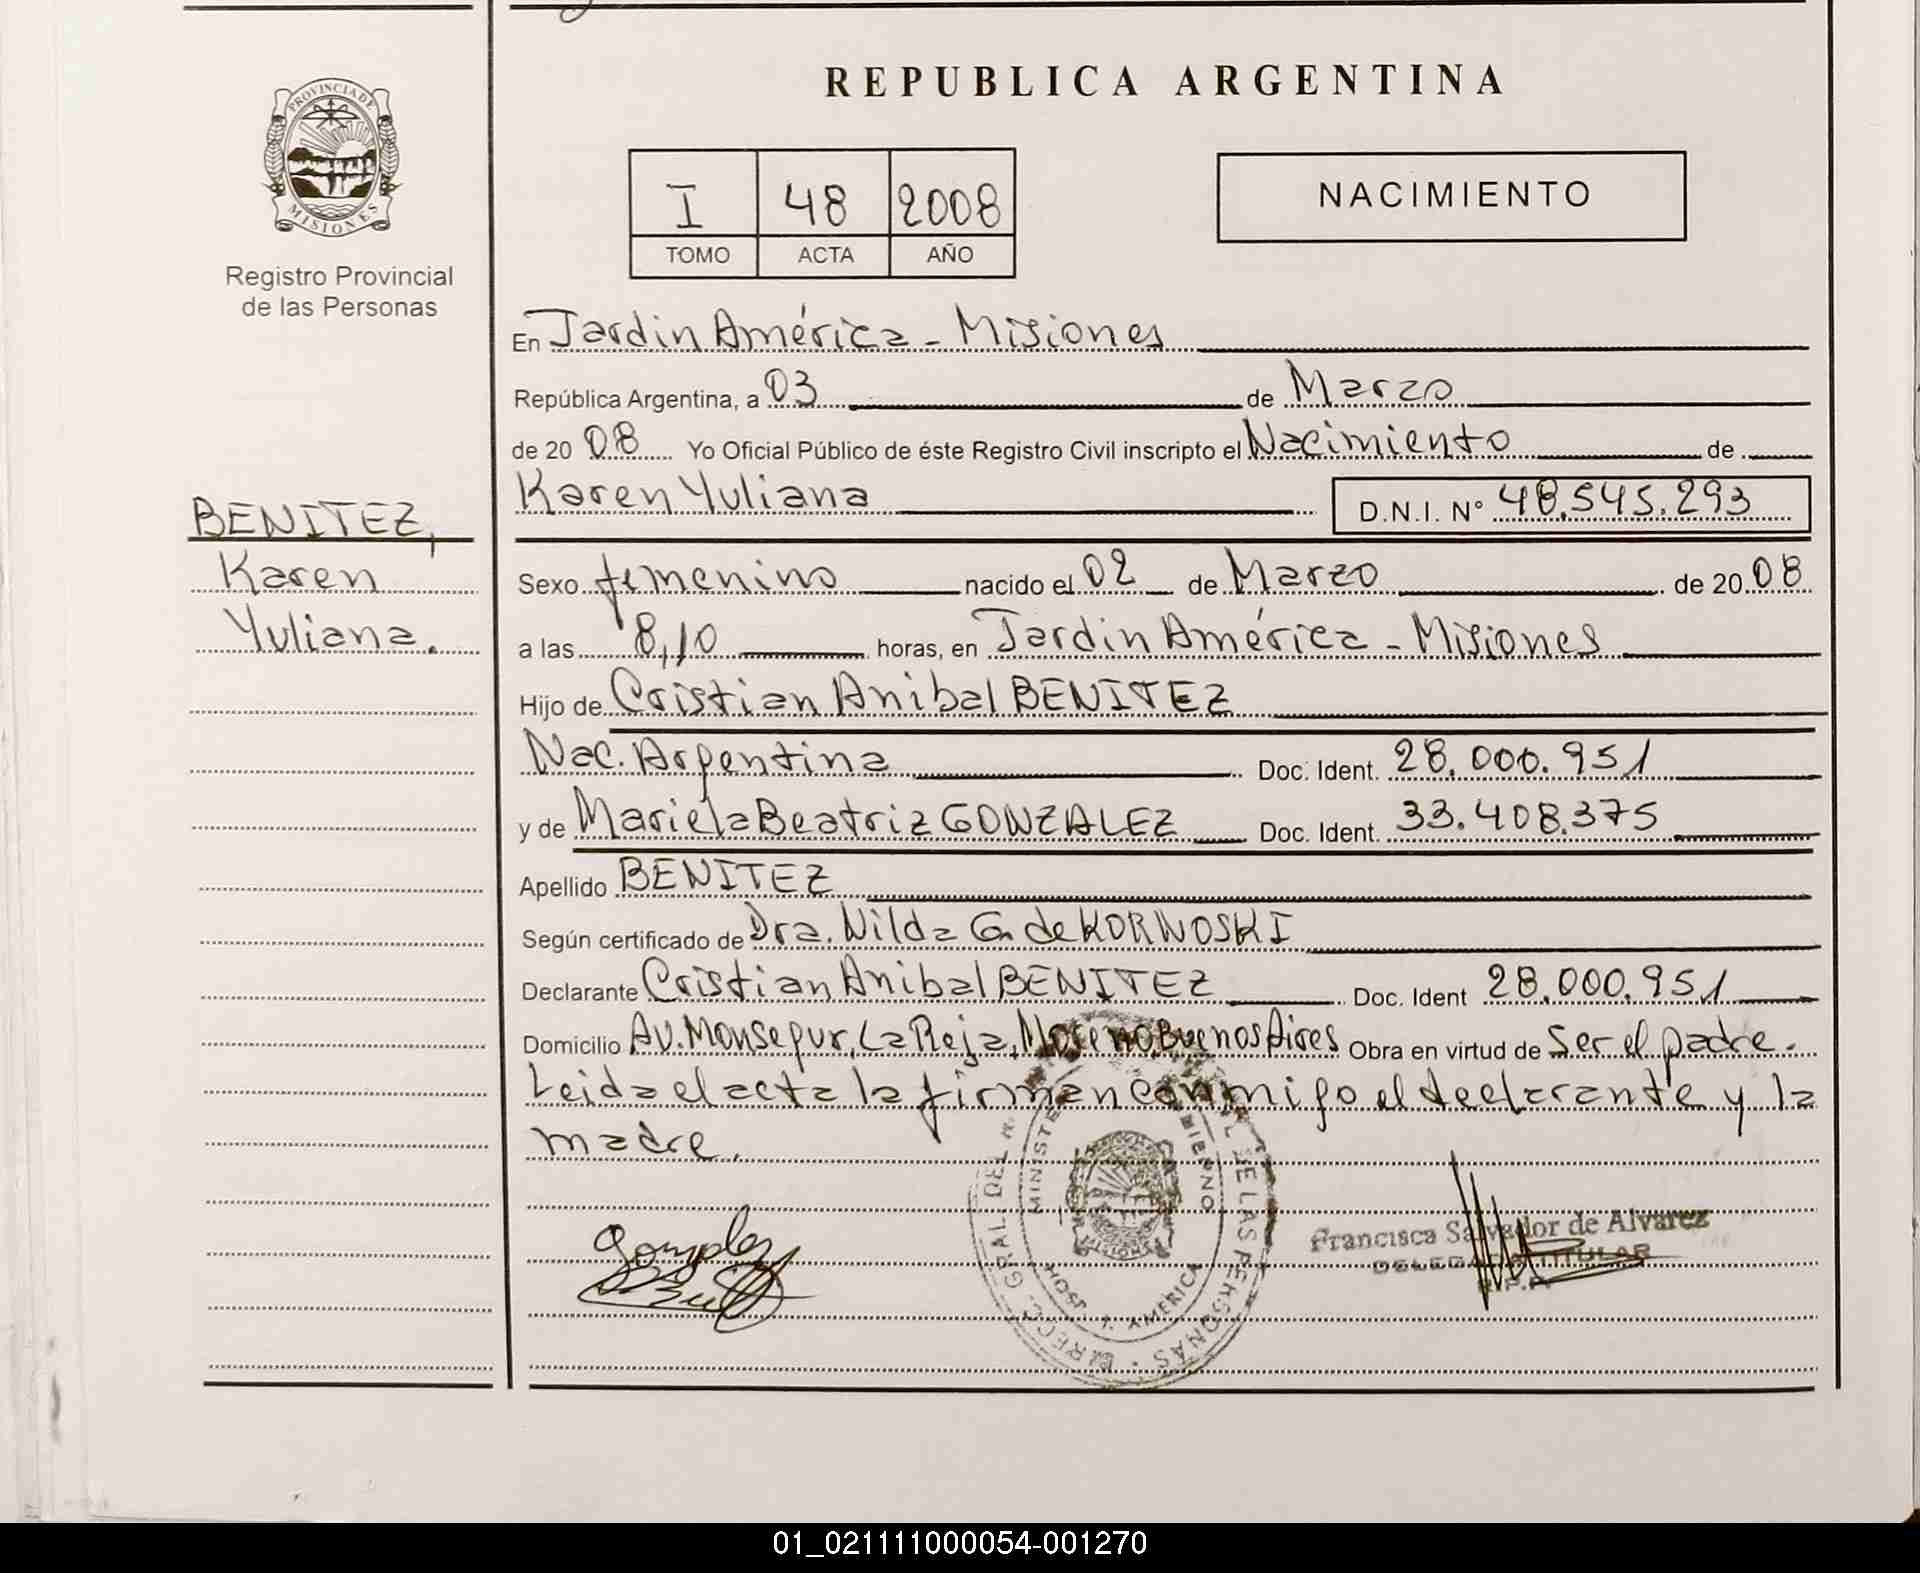 REPUBLICA ARGENTINA
PROVINCIA DE
MISIONES
I 48 2008
TOMO ACTA AÑO
NACIMIENTO
Registro Provincial
de las Personas
BENITEZ,
Karen
Yuliana.
En Jardin América - Misiones
República Argentina, a 03 de Marzo
de 20 08 Yo Oficial Público de éste Registro Civil inscripto el Nacimiento de
Karen Yuliana D.N.I. N° 48.545.293
Sexo femenino nacido el 02 de Marzo de 20 08
a las 8,10 horas, en Jardin América - Misiones
Hijo de Cristian Anibal BENITEZ
Nac. Argentina Doc. Ident. 28.000.951
y de Mariela Beatriz GONZALEZ Doc. Ident. 33.408.375
Apellido BENITEZ
Según certificado de Dra. Nilda G. de KORNOSKI
Declarante Cristian Anibal BENITEZ Doc. Ident 28.000.951
Domicilio Av. Monsegur, La Reja, Moreno, Buenos Aires Obra en virtud de Ser el padre.
Leida el acta la firman conmigo el declarante y la
madre.
DE LAS PERSONAS
AMERICA
Francisca Salvador de Alvarez
DELEGADA TITULAR
R.P.P.
01_021111000054-001270